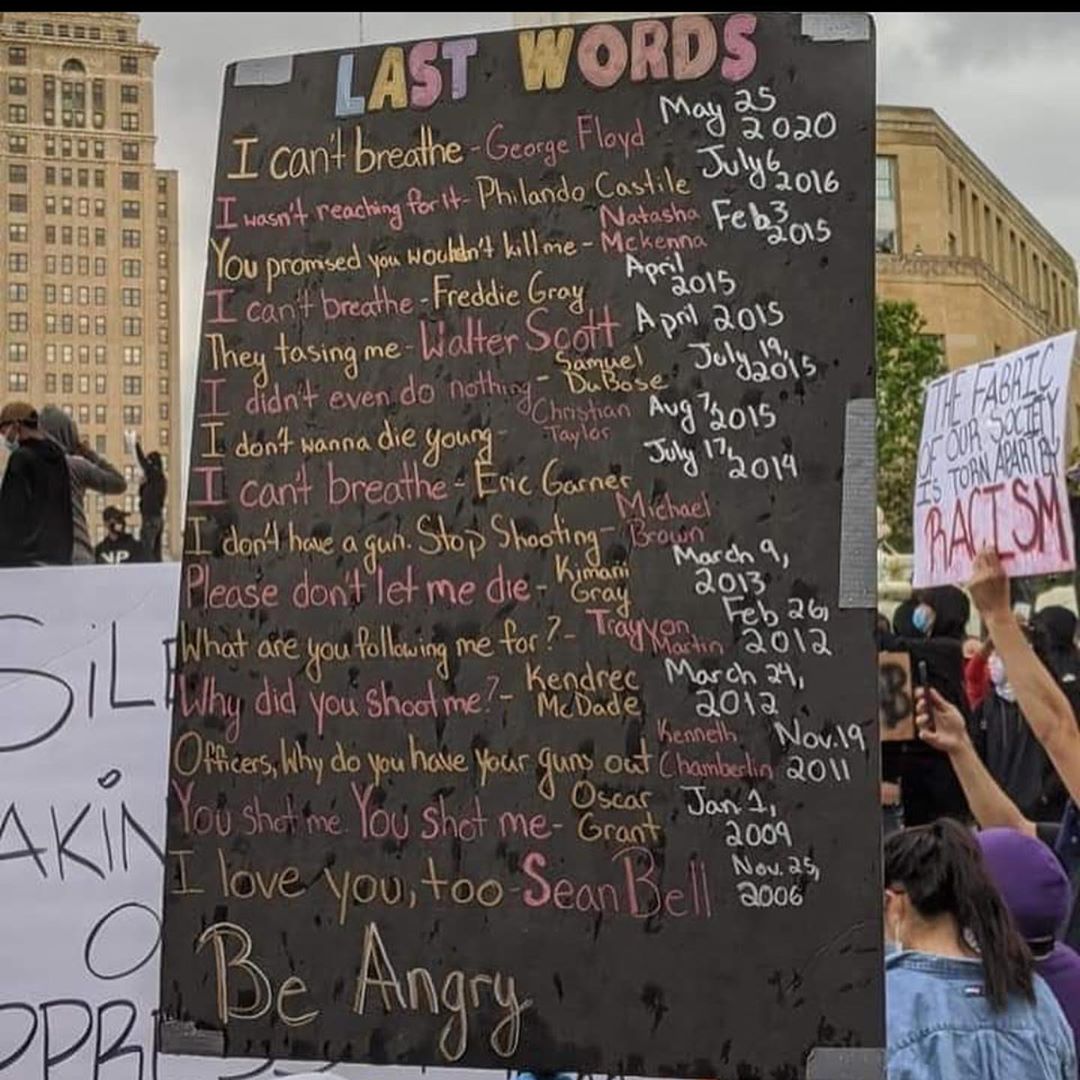 LAST WORDS
I can't breathe - George Floyd May 25 2020
I wasn't reaching for it - Philando Castile July 6, 2016
You promised you wouldn't kill me - Natasha Mckenna Feb 3 2015
I can't breathe - Freddie Gray April 2015
They tasing me - Walter Scott April 2015
I didn't even do nothing - Samuel DuBose July 19, 2015
I don't wanna die young - Christian Taylor Aug 7, 2015
I can't breathe - Eric Garner July 17, 2014
I don't have a gun. Stop Shooting - Michael Brown
Please don't let me die - Kimani Gray March 9, 2013
What are you following me for? - Trayvon Martin Feb 26, 2012
Why did you shoot me? - Kendrec McDade March 24, 2012
Officers, Why do you have your guns out Kenneth Chamberlin Nov. 19 2011
You shot me. You shot me - Oscar Grant Jan. 1, 2009
I love you, too - Sean Bell Nov. 25, 2006
Be Angry
THE FABRIC
OF OUR SOCIETY
IS TORN APART BY
RACISM
SiL
AKiN
O
PPR